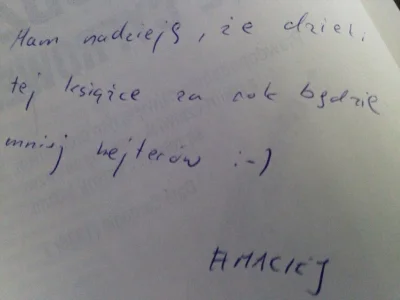 Mam nadzieję, że dzięki
tej książce za rok będzie
mniej hejterów :-)